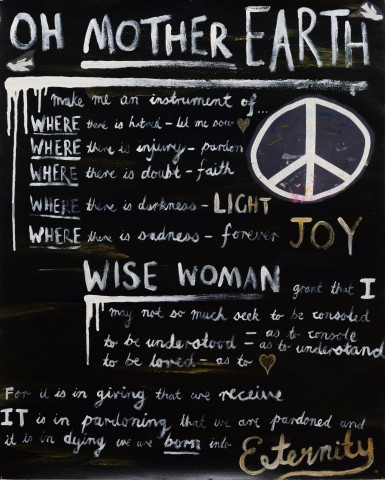 OH MOTHER EARTH
make me an instrument of...
WHERE there is hatred - let me sow
WHERE there is injury - pardon
WHERE there is doubt - faith
WHERE there is darkness - LIGHT
WHERE there is sadness - forever JOY
WISE WOMAN grant that I
may not so much seek to be consoled
- as to console
to be understood - as to understand
to be loved - as to
For it is in giving that we receive
IT is in pardoning that we are pardoned and
it is in dying we are born into
Eternity